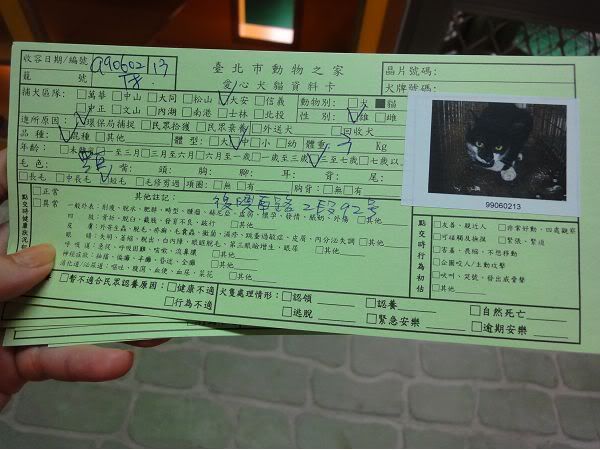 收容日期/編號 990602/13
臺北市動物之家
晶片號碼:
籠 號 T8
愛心犬貓資料卡
犬牌號碼:
捕犬區隊: □萬華 □中山 □大同 □松山 □大安 □信義 動物別: □犬 ■貓
□中正 □文山 □內湖 □南港 □士林 □北投 性 別: □雄 □雌
進所原因: □環保局捕捉 □民眾拾獲 □民眾棄養 □外送犬 □回收犬
品 種: □混種 □其他 體 型: □大 □中 □小 □幼 體重: 3 Kg
年齡: □一至三月 □三月至六月 □六月至一歲 □一歲至三歲 □三至七歲 □七歲以上
毛 色: 背: 頭: 胸: 腳: 耳: 尾:
□長毛 □中長毛 □短毛 □毛修剪過 項圈: □無 □有 胸背: □無 □有
99060213
點交時健康狀況
□正常
□異常
其他註記: 復興南路2段92號
點交時行為初估
□友善、親近人 □非常好動、四處觀察
□可碰觸及抱撫 □緊張、緊迫
□害羞、畏縮、不想移動
□企圖咬人/主動攻擊
□吠叫、哭號、發出威脅聲
□其他
□暫不適合民眾認養原因: □健康不適
□行為不適
犬隻處理情形: □認領 □認養 □自然死亡
□逃脫 □緊急安樂 □逾期安樂